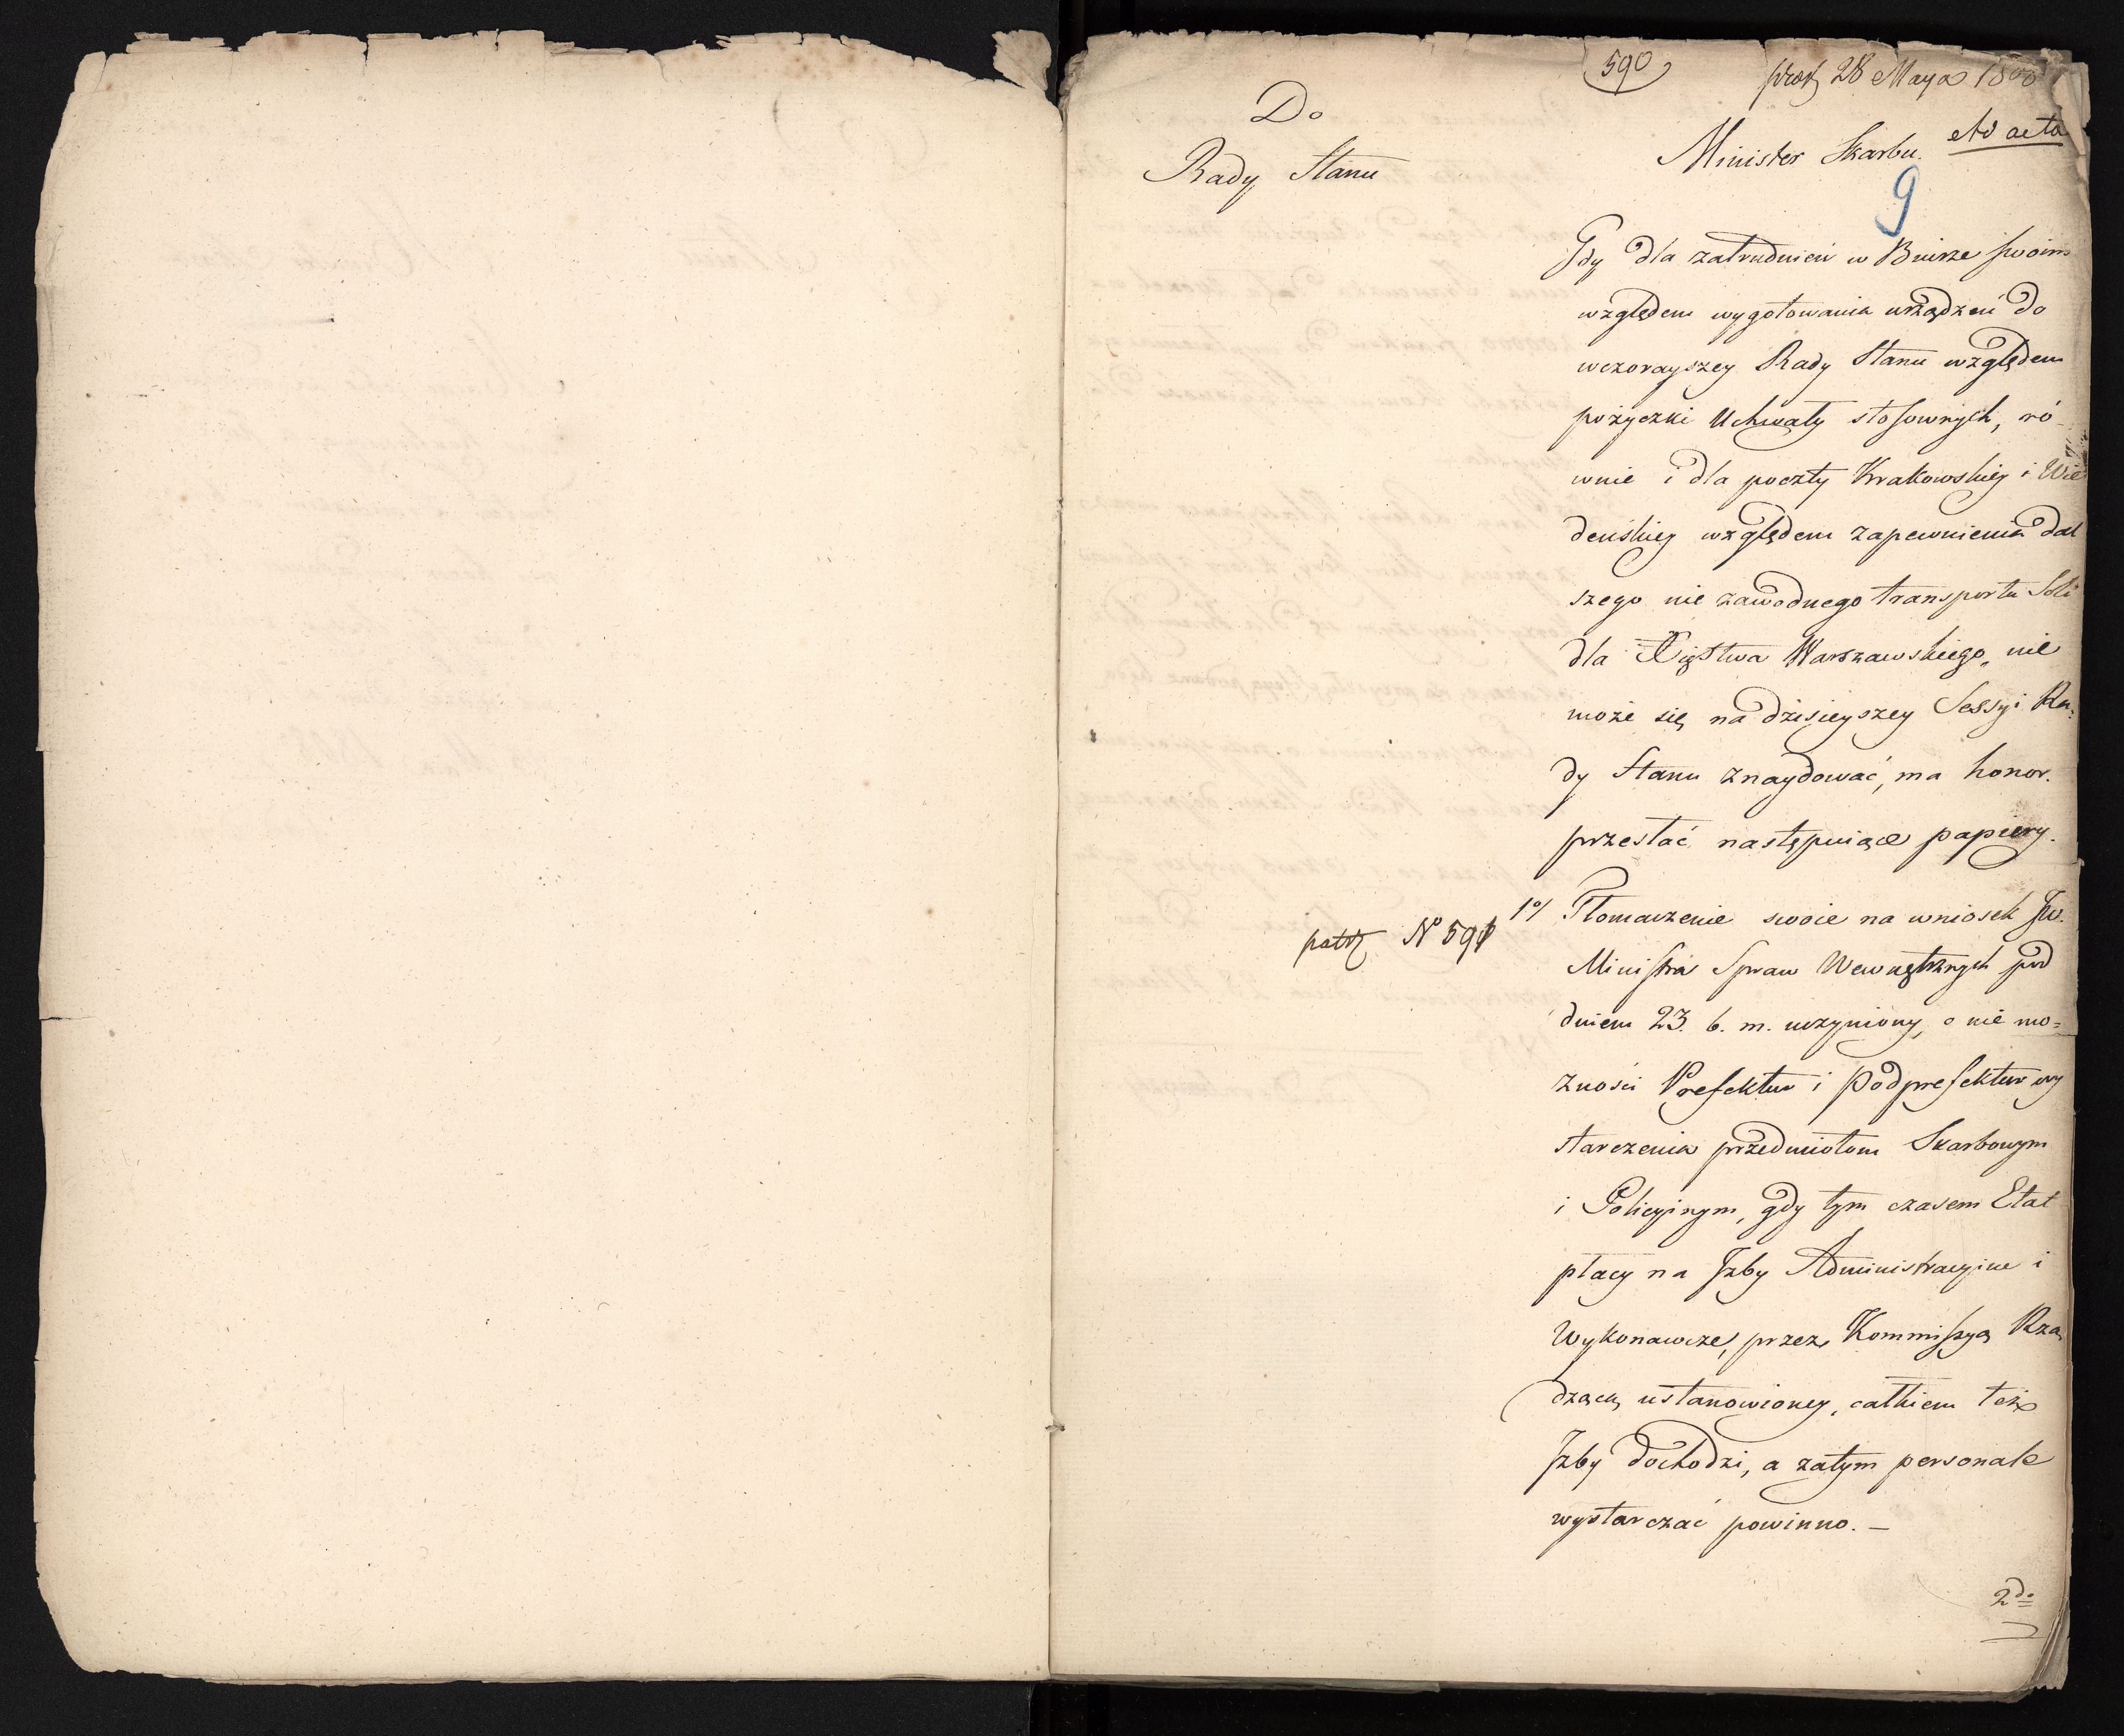 590
28 Maya 1808
Ad acta
Do
Rady Stanu
Minister Skarbu.
9
Gdy dla zatrudnień w Biurze swoim
względem wygotowania urządzeń do
wczorayszey Rady Stanu względem
pożyczki Uchwały stosownych, ró-
wnie i dla poczty Krakowskiey i Wie
deńskiey względem zapewnienia dal
szego nie zawodnego transportu Soli
dla Xięstwa Warszawskiego, nie
może się na dzisieyszey Sessyi Ra-
dy Stanu znaydować, ma honor
przesłać następuiące papiery.
patrz N° 591
1°/ Tłomaczenie swoie na wniosek JW.
Ministra Spraw Wewnętrznych pod
dniem 23. b. m. uczyniony, o nie mo=
żności Prefektur i Podprefektur wy
starczenia przedmiotom Skarbowym
i Policyinym, gdy tym czasem Etat
płacy na Izby Administracyine i
Wykonawcze, przez Kommissyą Rzą
dzącą ustanowioney, całkiem też
Izby dochodzi, a zatym personale
wystarczać powinno. —
2do